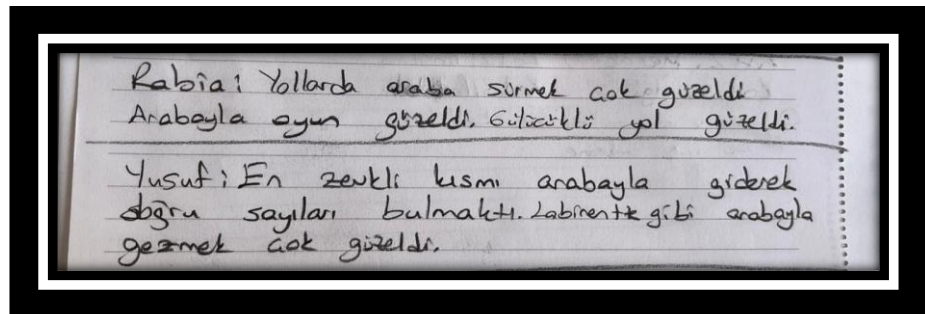 Rabia: Yollarda araba sürmek çok güzeldi
Arabayla oyun güzeldi. Gülücüklü yol güzeldi.
Yusuf: En zevkli kısmı arabayla giderek
doğru sayıları bulmaktı. Labirentte gibi arabayla
gezmek çok güzeldi.